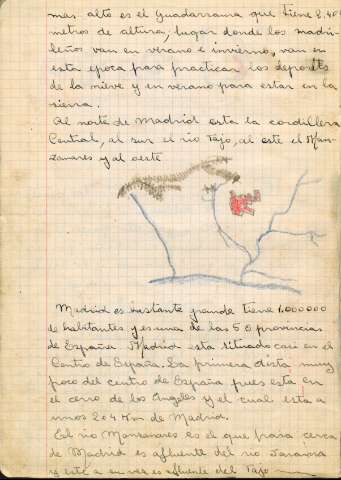 mas alto es el Guadarrama que tiene 2.40
metros de altura, lugar donde los madri-
leños van en verano e invierno, van en
esta epoca para practicar los deportes
de la nieve y en verano para estar en la
sierra.
Al norte de Madrid esta la cordillera
Central, al sur el rio Tajo, al este el Man-
zanares y al oeste
Madrid es bastante grande tiene 1.000000
de habitantes y es una de las 50 provincias
de España Madrid esta situado casi en el
Centro de España. La primera dista muy
poco del centro de España pues esta en
el cerro de los Angeles y el cual esta a
unos 204 Km de Madrid.
El rio Manzanares es el que pasa cerca
de Madrid es afluente del rio Jarama
y este a su vez es afluente del Tajo